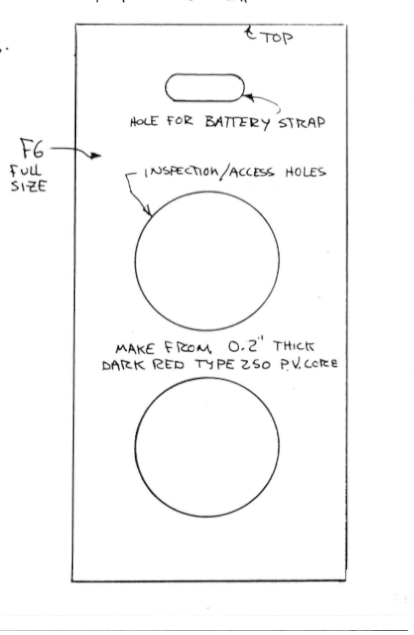 TOP
HOLE FOR BATTERY STRAP
F6
FULL
SIZE
INSPECTION/ACCESS HOLES
MAKE FROM 0.2" THICK
DARK RED TYPE 250 P.V. CORE